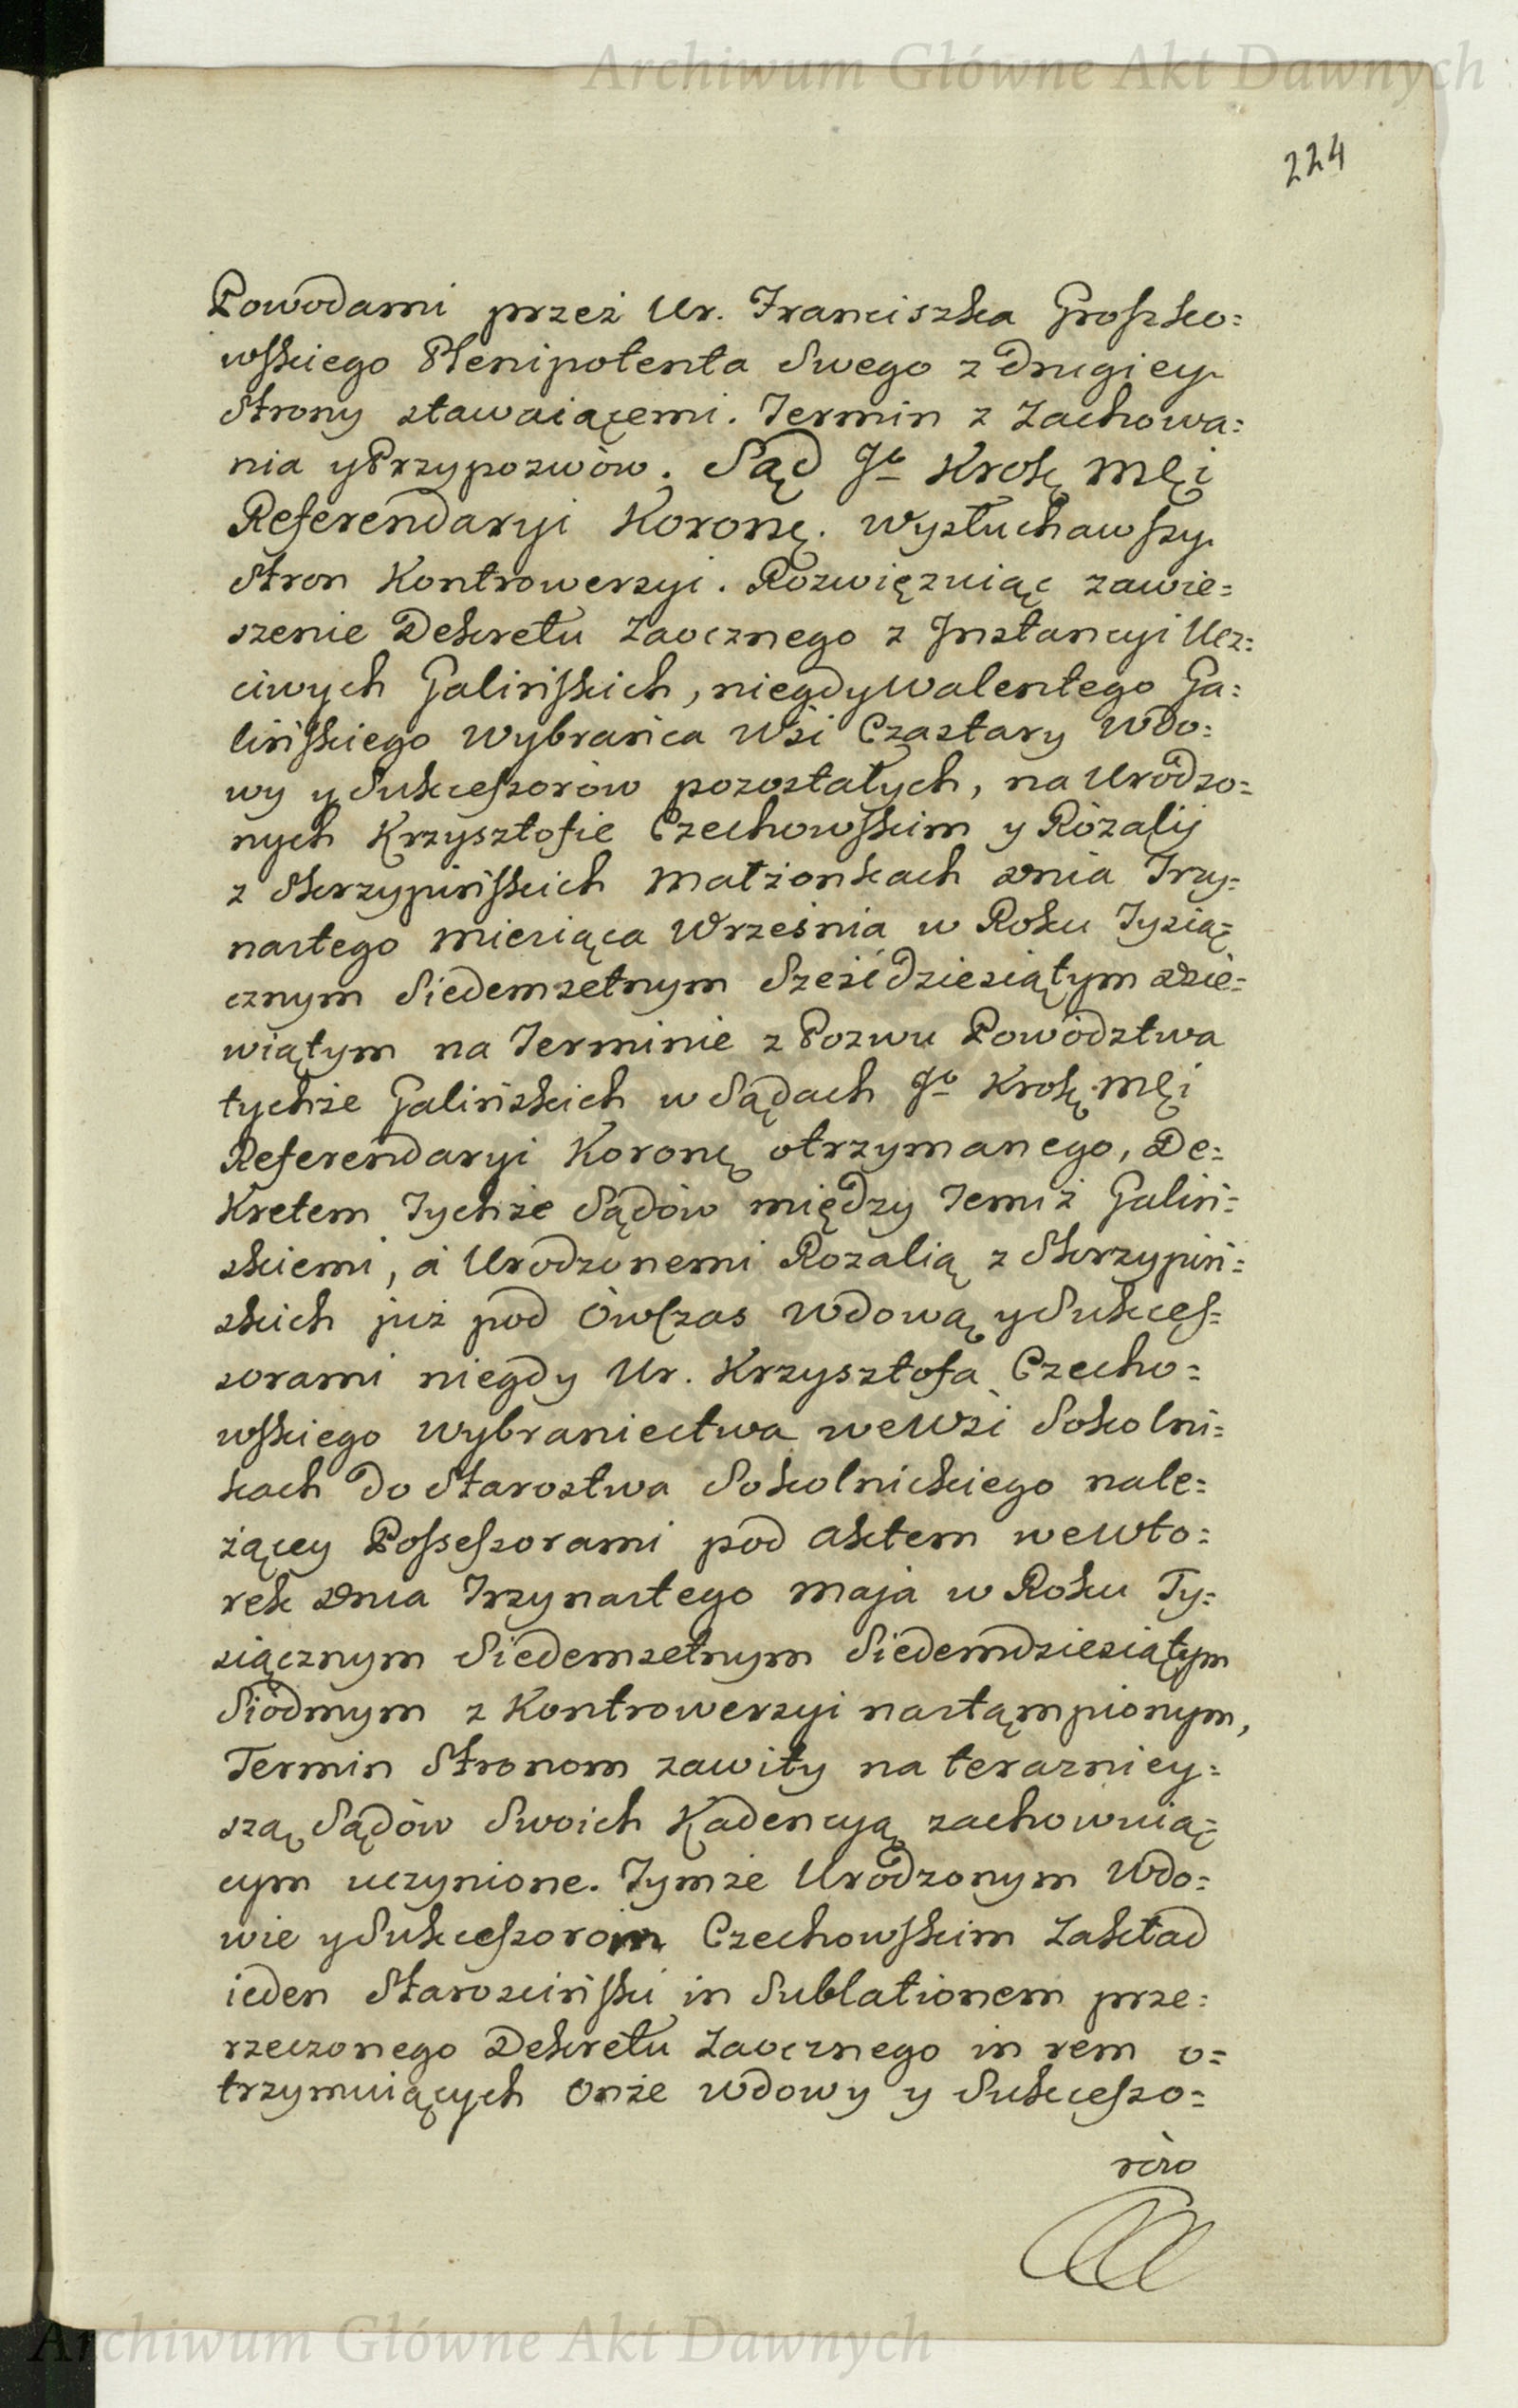 Archiwum Główne Akt Dawnych
224
Powodami przez Ur. Franciszka Groszko=
wskiego Plenipotenta Swego z drugiey
Strony stawaiącemi. Termin z Zachowa=
nia y Przypozwów. Sąd Jo Krolę mći
Referendaryi Koronę. wysłuchawszy
Stron Kontrowersyi. Rozwięzuiąc zawie=
szenie Dekretu Zaocznego z Jnstancyi Ucz=
ciwych Galińskich, niegdy Walentego Ga=
lińskiego Wybrańca Wsi Czastary Wdo=
wy y Sukcessorów pozostałych, na Urodzo=
nych Krzysztofie Czechowskim y Rozalij
z Skrzypińskich Małżonkach dnia Trzy=
nastego Miesiąca Września w Roku Tysią=
cznym Siedemsetnym Sześćdziesiątym dzie=
wiątym na Terminie z Pozwu Powództwa
tychże Galińskich w Sądach Jo Krolę mći
Referendaryi Koronę otrzymanego, De=
kretem Tychże Sądów między Temiż Galiń=
skiemi, á Urodzonemi Rozalią z Skrzypiń=
skich już pod ówczas Wdową y Sukces=
sorami niegdy Ur. Krzysztofa Czecho=
wskiego Wybraniectwa we Wsi Sokolni=
kach do Starostwa Sokolnickiego nale=
żącey Possessorami pod aktem we Wto=
rek dnia Trzynastego Maja w Roku Ty=
siącznym Siedemsetnym Siedemdziesiątym
Siódmym z Kontrowersyi nastąmpionym,
Termin Stronom zawity na terazniey=
szą Sądów Swoich Kadencyą zachowuią=
cym uczynione. Tymże Urodzonym Wdo=
wie y Sukcessorom Czechowskim Zakład
ieden Starosciński in Sublationem prze=
rzeczonego Dekretu Zaocznego in rem o=
trzymuiących Onże Wdowy y Sukcesso=
rów
Archiwum Główne Akt Dawnych